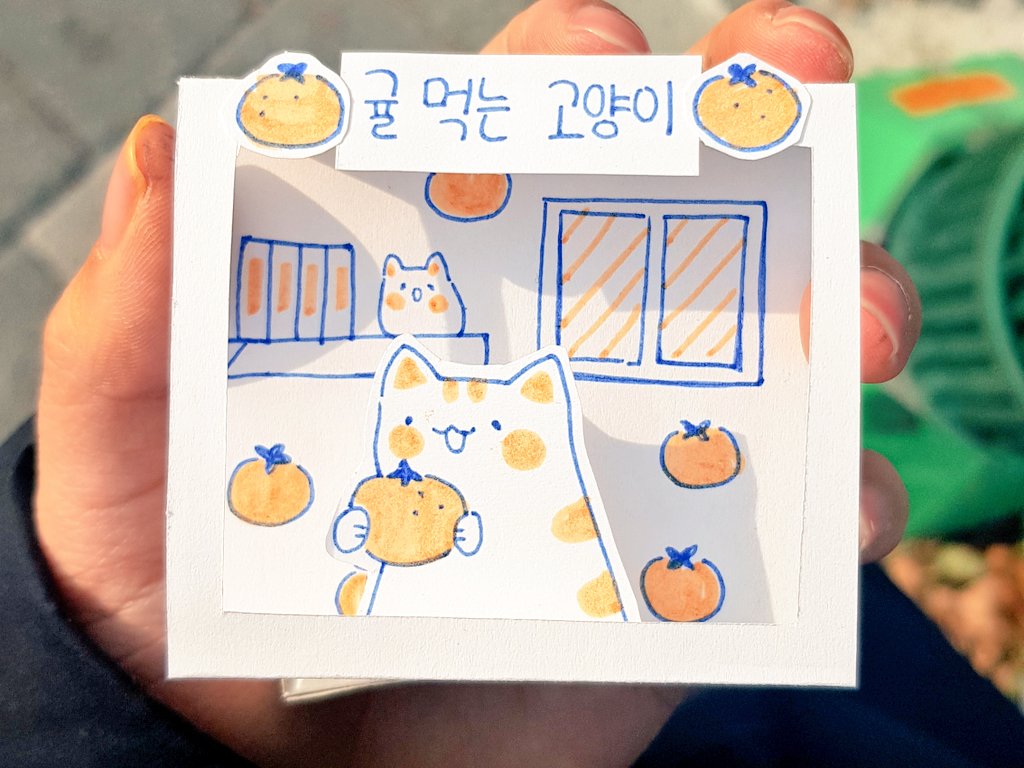 귤 먹는 고양이